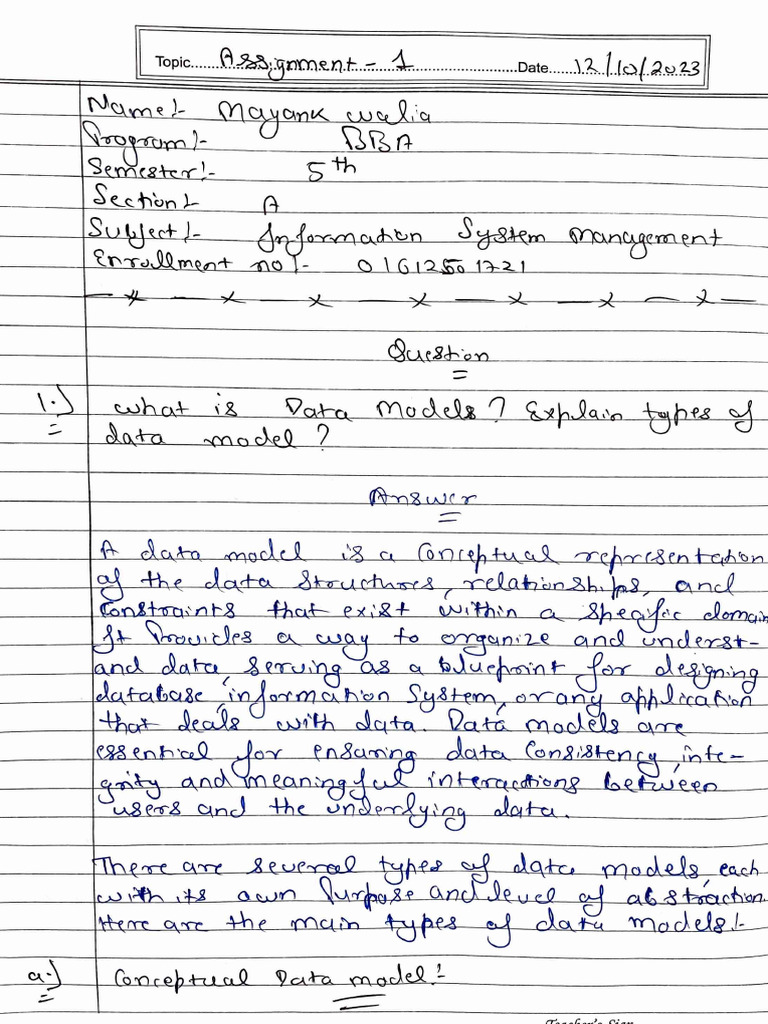 Topic......Assignment - 1......Date......12/10/2023
Name:- Mayank Walia
Program:- BBA
Semester:- 5th
Section:- A
Subject:- Information System Management
Enrollment no:-
Question
1.) What is Data Models? Explain types of
data model?
Answer
A data model is a conceptual representation
of the data structures, relationships, and
constraints that exist within a specific domain
It provides a way to organize and underst-
and data, serving as a blueprint for designing
database, information system, or any application
that deals with data. Data models are
essential for ensuring data consistency, inte-
grity and meaningful interactions between
users and the underlying data.
There are several types of data models, each
with its own purpose and level of abstraction.
Here are the main types of data models:-
a.) Conceptual Data model:-
Teacher's Sign